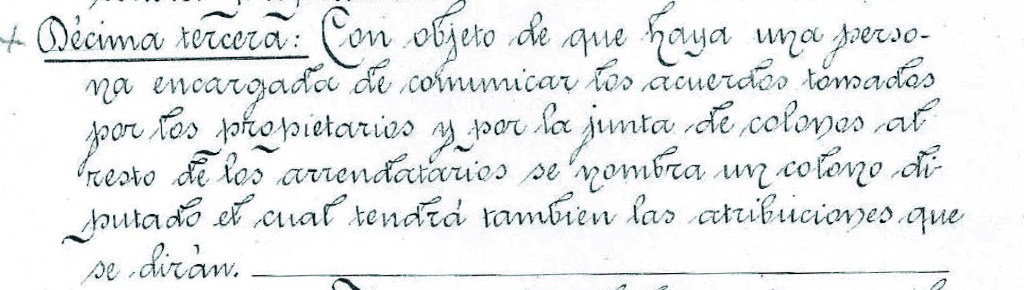 + Décima tercera: Con objeto de que haya una perso-
na encargada de comunicar los acuerdos tomados
por los propietarios y por la junta de colonos al
resto de los arrendatarios se nombra un colono di-
putado el cual tendrá tambien las atribuciones que
se dirán.